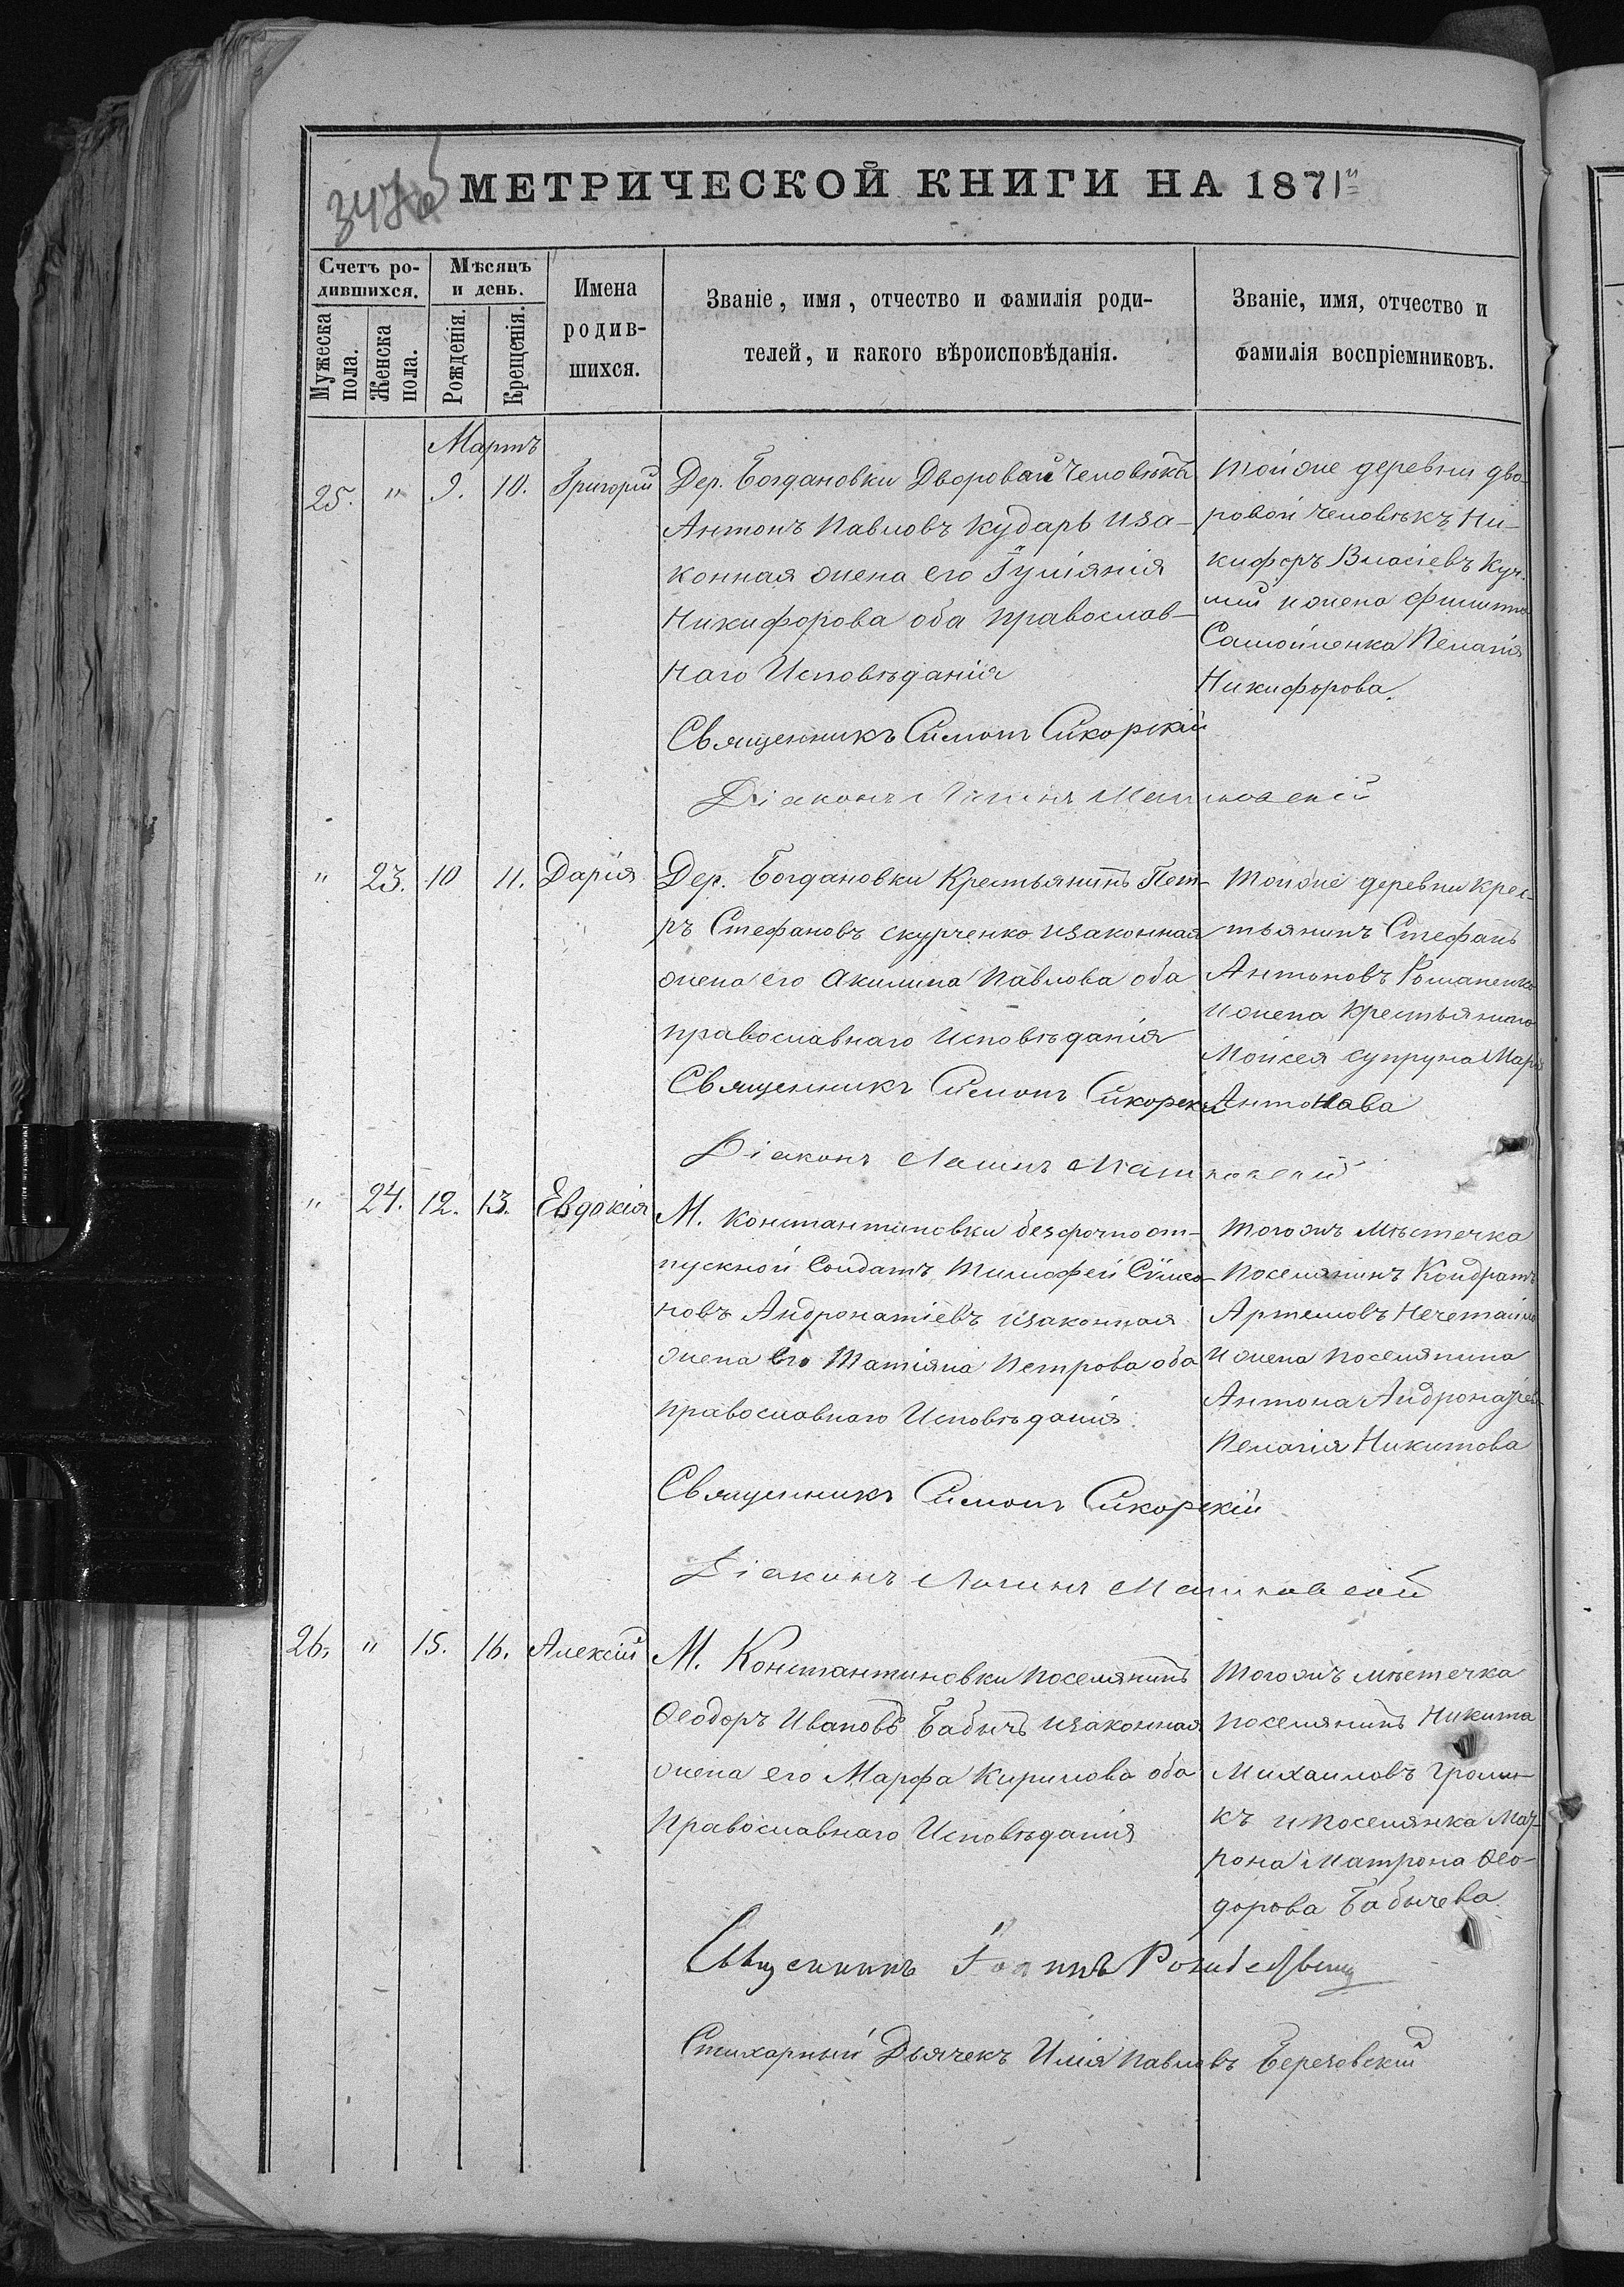 МЕТРИЧЕСКОЙ КНИГИ НА 1871й
Счетъ ро-
дившихся.
Мужеска пола.
Женска пола.
Мѣсяцъ
и день.
Рожденія.
Крещенія.
Имена
родив-
шихся.
Званіе, имя, отчество и фамилія роди-
телей, и какого вѣроисповѣданія.
Званіе, имя, отчество и
фамилія воспріемниковъ.
Мартъ
25. " 9. 10. Григорій
Дер. Богдановки Дворовай Человѣкъ
Антонъ Павловъ Кударь иза-
конная жена его Гуліянія
Никифорова оба православ-
наго Исповѣданія
Священникъ Симонъ Сикорскій
Діаконъ
тойже деревни дво-
ровой человѣкъ Ни-
кифоръ Власіевъ
и жена
Самойленка Пелагія
Никифорова.
" 23. 10 11. Дарія
Дер. Богдановки Крестьянинъ Пет-
ръ Стефановъ Скурченко изаконная
жена его Акилина Павлова оба
православнаго Исповѣданія
Священникъ Симонъ Сикорскій
Діаконъ
Тойже деревни крес-
тьянинъ Стефанъ
Антоновъ Романенко
и жена Крестьянина
Мойсея Супруна Марія
Антонава
" 24. 12. 13. Евдокія
М. Константиновки безсрочноот-
пускной Солдатъ Тимофей Симо-
новъ Андронатіевъ изаконная
жена его Татіяна Петрова оба
православнаго Исповѣданія
Священникъ Симонъ Сикорскій
Діаконъ
тогожъ мѣстечка
поселянинъ Кондратъ
Артемовъ Нечетайло
и жена поселянина
Антона
Пелагія Никитова
26. " 15. 16. Алексій
М. Константиновки поселянинъ
Ѳеодоръ Ивановъ Бабычъ изаконная
жена его Марфа Кирилова оба
Православнаго Исповѣданія
Іоаннъ
Стихарный Дьячекъ Илія Павловъ Березовскій
тогожъ мѣстечка
поселянинъ Никита
Михаиловъ
къ и поселянка Мат-
рона Матрона Ѳео-
дорова Бабычева